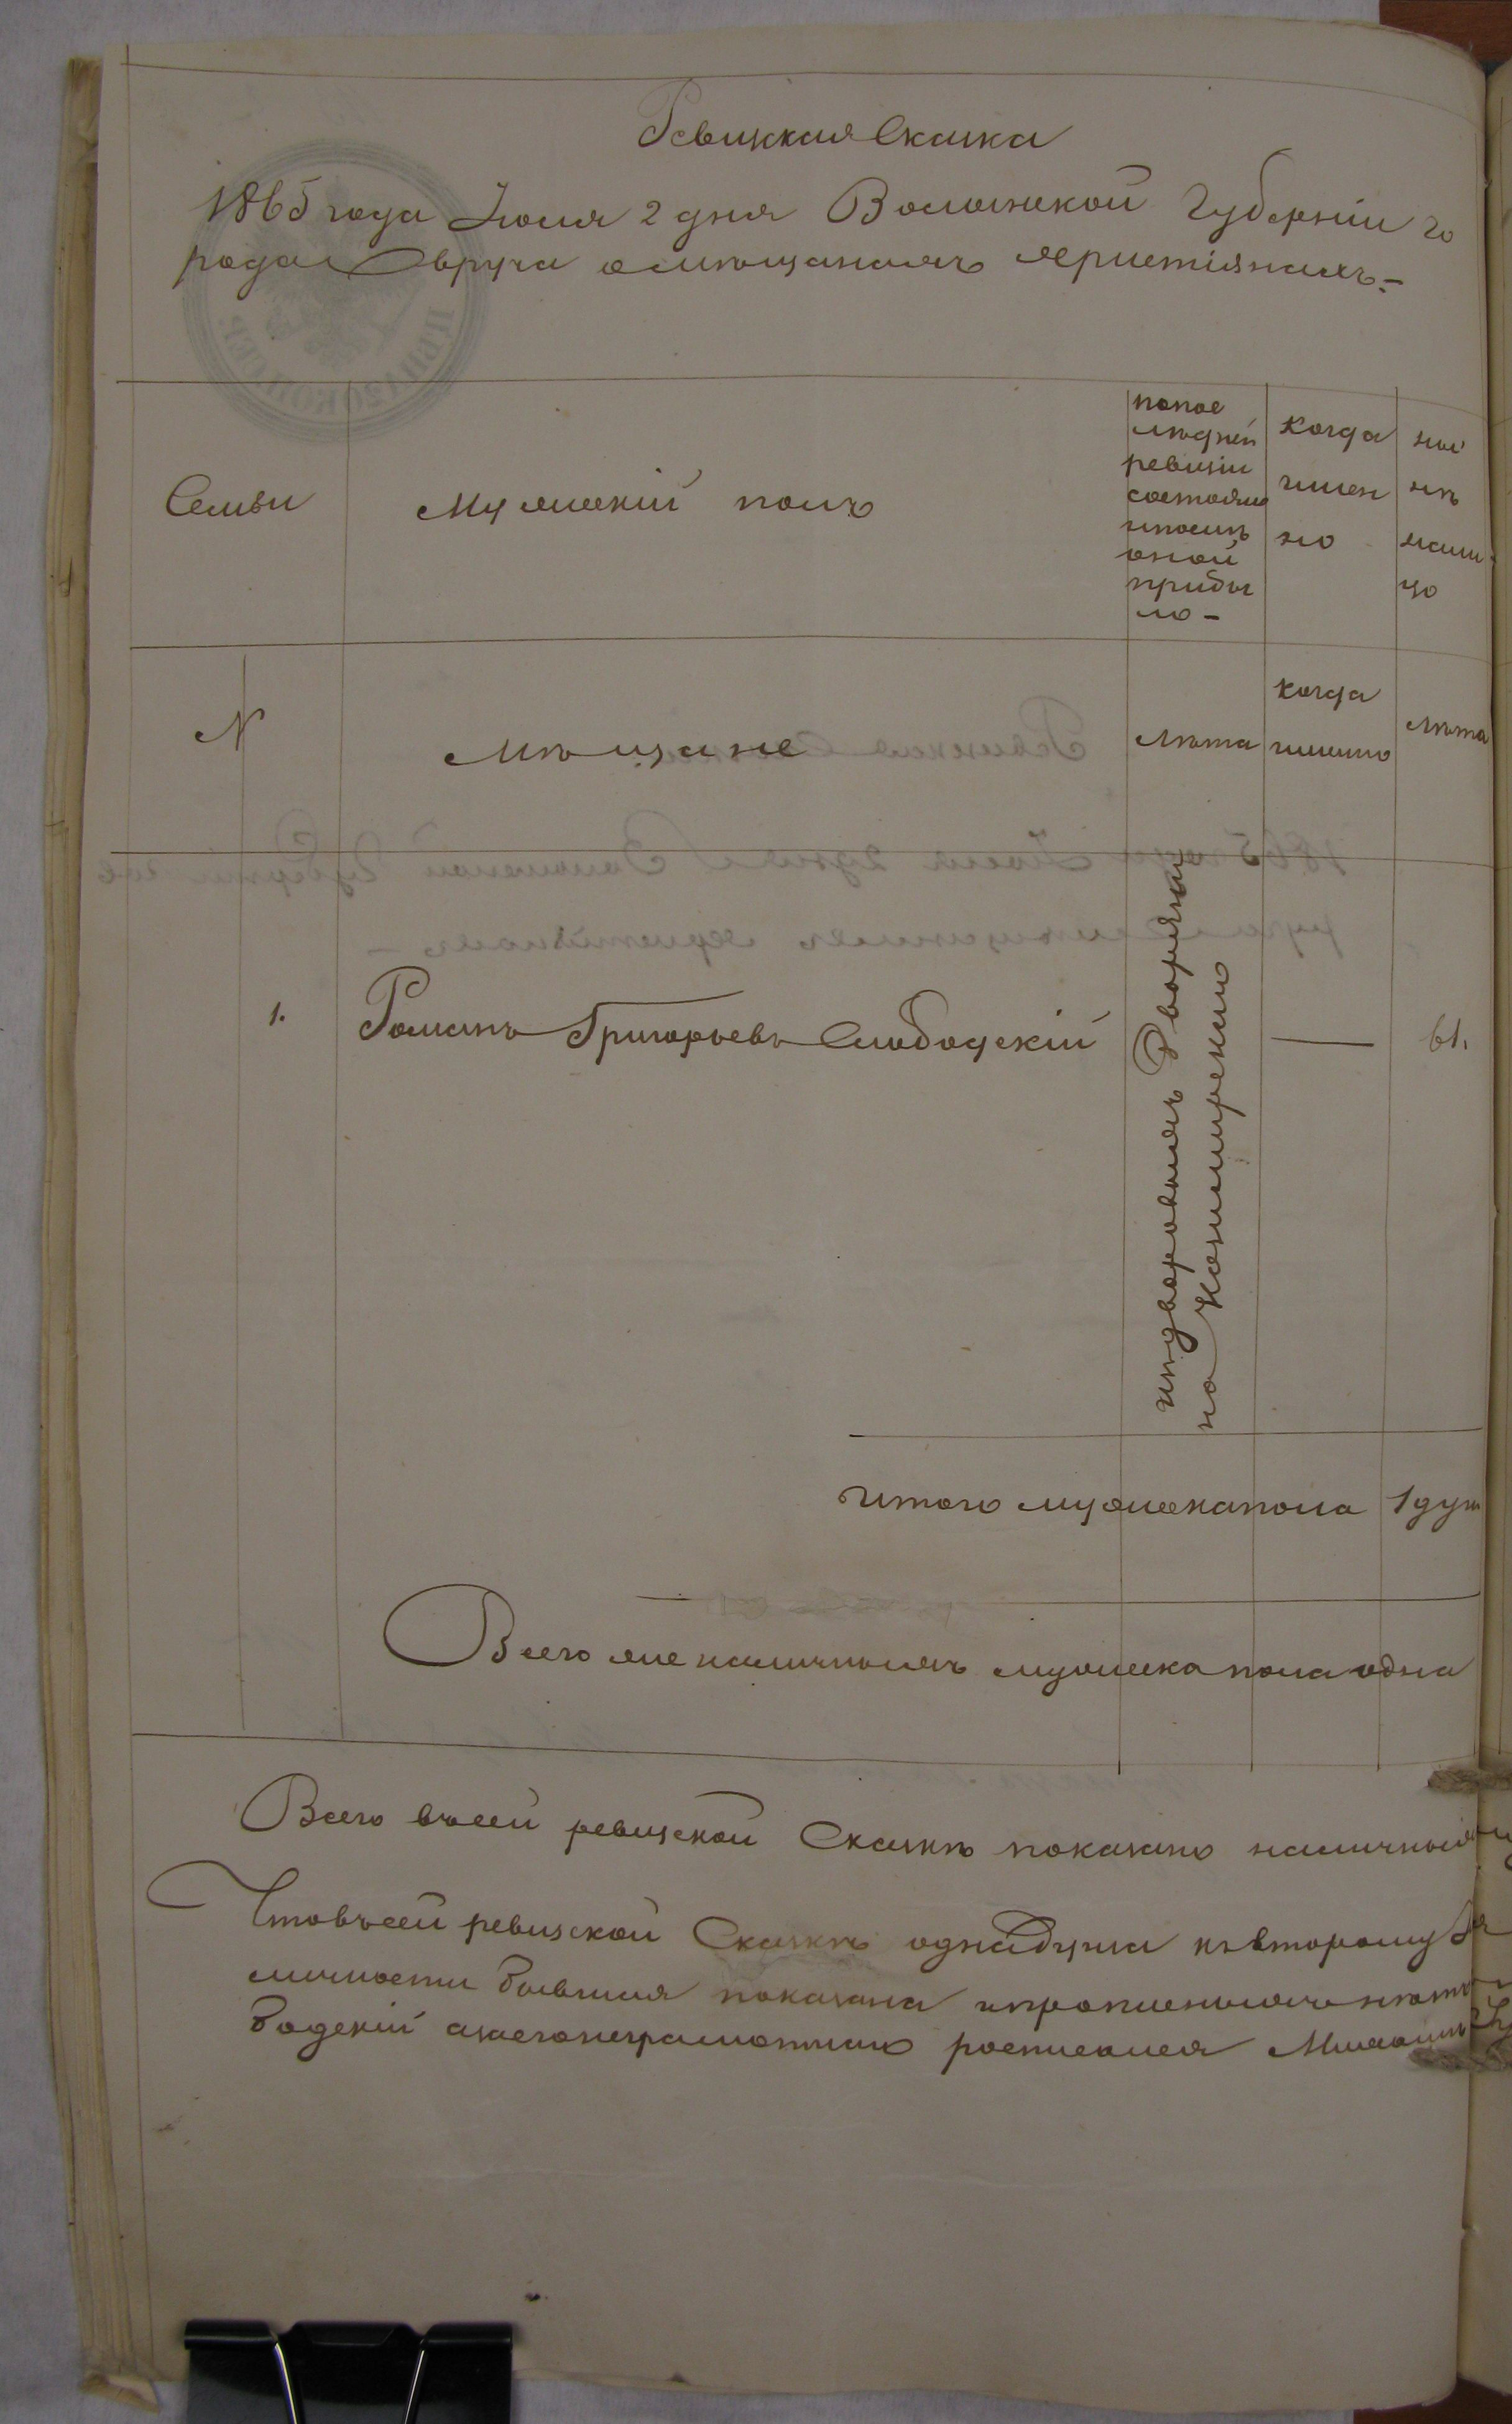 Ревизкая Скаска
1865 года Июля 2 дня Волынской Губерніи го
рода Овруча о мѣщанахъ христіянахъ.-
Семьи
Мужескій полъ
попос
лѣдней
ревизіи
состояло
ипослѣ
оной
прибы
ло -
Когда
имен
но
ны
нѣ
нали
цо
N
мѣщане
лѣта
когда
имено
лѣта
1.
Романъ Григорьевъ Слободскій
61.
итого мужеска пола 1 душ
Всего же наличныхъ мужеска пола одна
Всего въсей ревизской Скаскѣ показано наличныхъ
Чтовъсей ревизской Скаскѣ однадуша ковторому
личности бывшая показана ипрописныхъ
бодскій азаегонеграмотнаго росписался